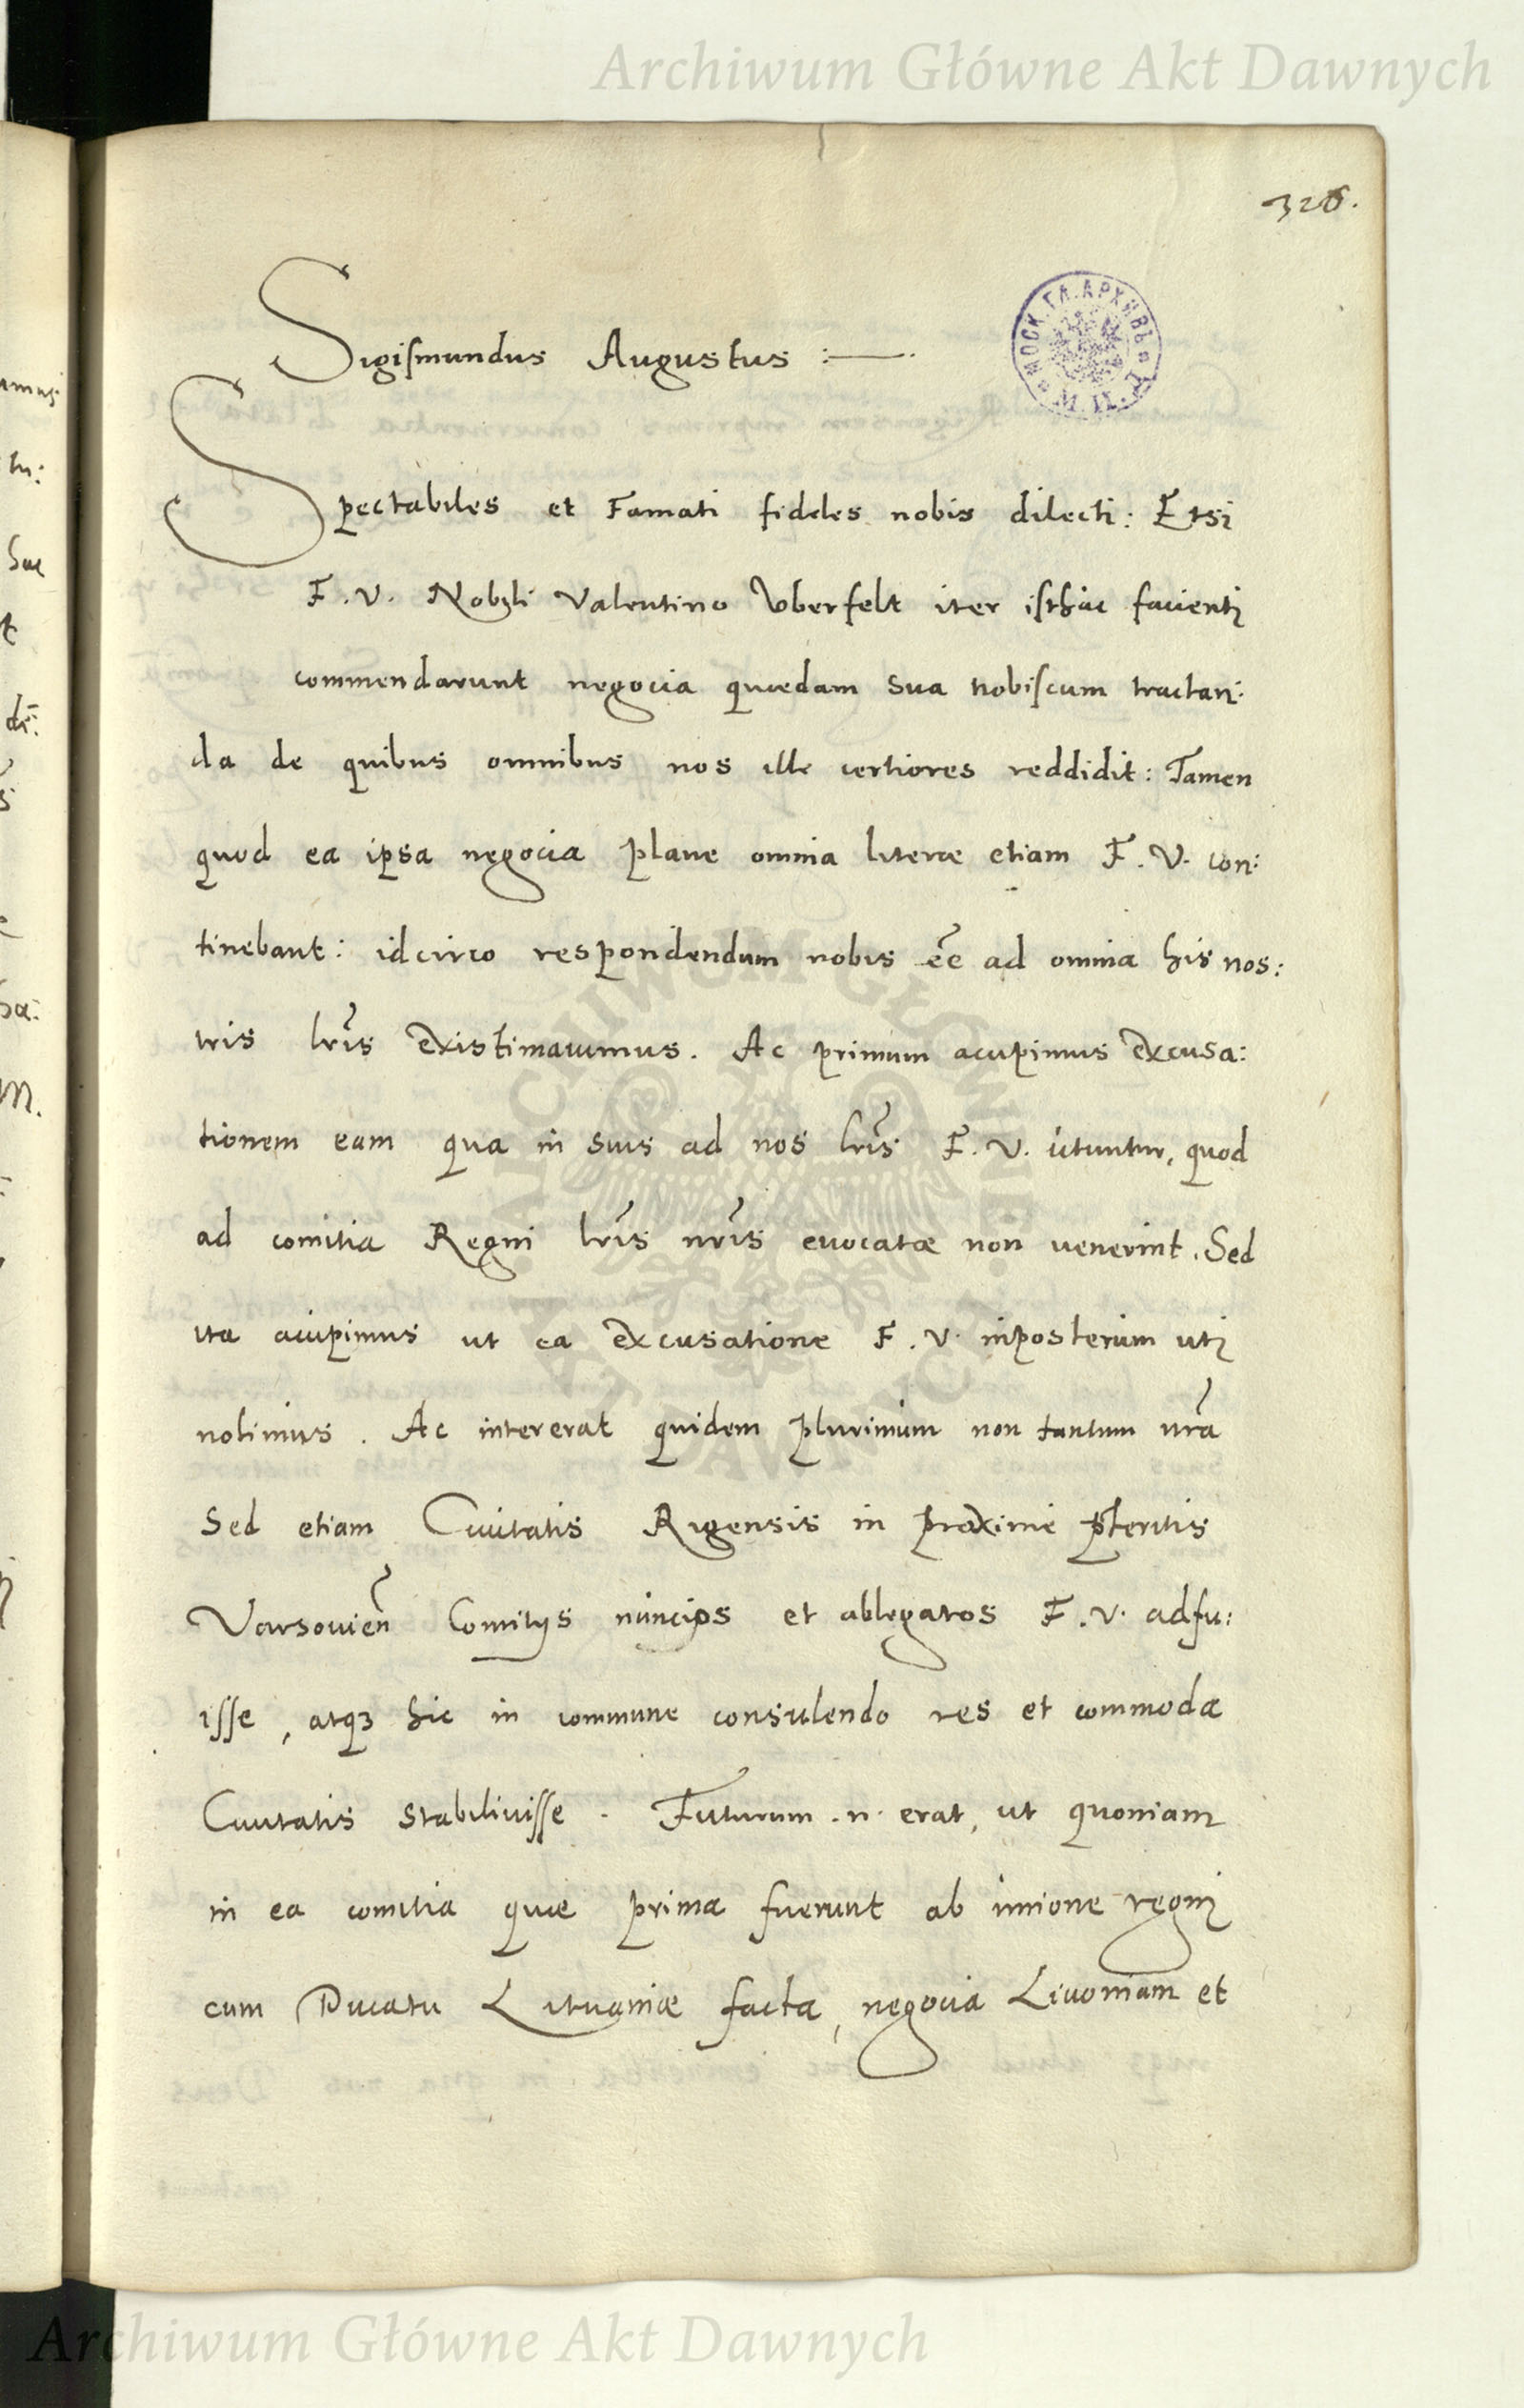 Archiwum Główne Akt Dawnych
326.
Sigismundus Augustus :—.
МОСК. ГЛ. АРХИВЪ
Spectabiles et Famati fideles nobis dilecti: Etsi
F. V. Nobili Valentino Vberfelt iter isthac facienti
commendarunt negocia quædam sua nobiscum tractan:
da de quibus omnibus nos ille certiores reddidit: Tamen
quod ea ipsa negocia plane omnia literæ etiam F. V. con:
tinebant: idcirco respondendum nobis eē ad omnia his nos:
tris lrīs existimavimus. Ac primum accipimus excusa:
tionem eam qua in suis ad nos lrīs F. V. utuntur, quod
ad comitia Regni lrīs nrīs euocatæ non uenerint. Sed
ita accipimus ut ea excusatione F. V. inposterum uti
nolimus. Ac intererat quidem plurimum non tantum nrā
Sed etiam Ciuitatis Rigensis in proxime pteritis
Varsouieñ Comitijs nuncios et ablegatos F. V. adfu:
isse, atqz hic in commune consulendo res et commoda
Ciuitatis stabiliuisse. Futurum .n. erat, ut quoniam
in ea comitia quæ prima fuerunt ab unione regni
cum Ducatu Lituaniæ facta, negocia Liuoniam et
ARCHIWUM GŁÓWNE AKT DAWNYCH
Archiwum Główne Akt Dawnych